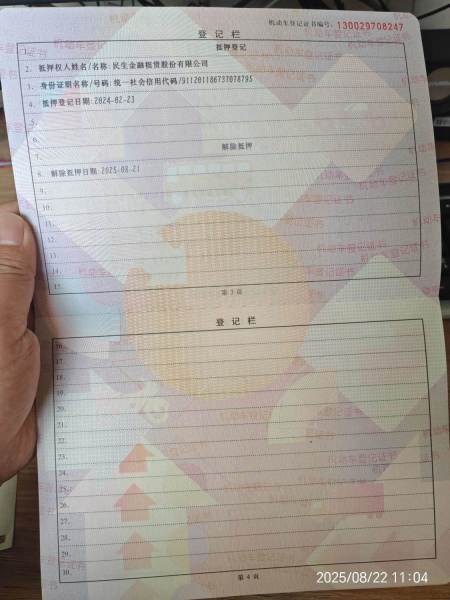 机动车登记证书编号: 130029708247
登记栏
1. 抵押登记
2. 抵押权人姓名/名称:民生金融租赁股份有限公司
3. 身份证明名称/号码:统一社会信用代码/911201186737078795
4. 抵押登记日期:2024-02-23
5.
6.
7. 解除抵押
8. 解除抵押日期:2025-08-21
9.
10.
11.
12.
13.
14.
15.
第 3 页
登记栏
16.
17.
18.
19.
20.
21.
22.
23.
24.
25.
26.
27.
28.
29.
30.
第 4 页
2025/08/22 11:04